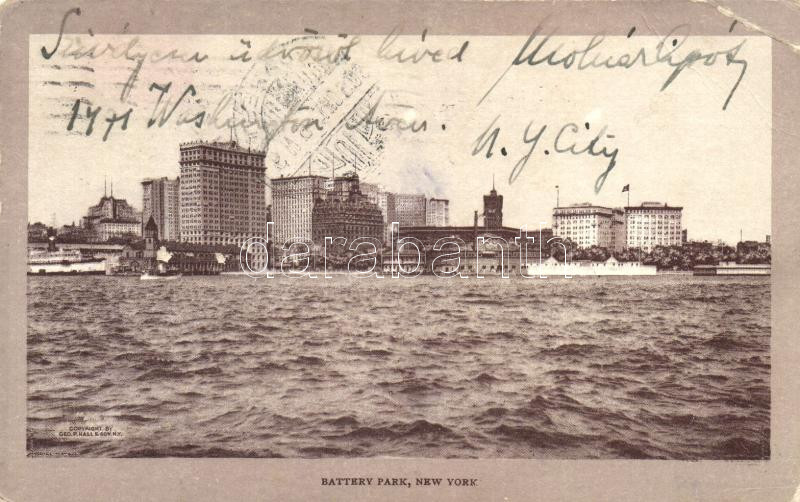 Szivélyesen üdvözöl híved Molnár Lipót
1471 Washington Aven.
N. Y. City.
darabanth.com
COPYRIGHT BY
GEO. P. HALL & SON, N.Y.
BATTERY PARK, NEW YORK